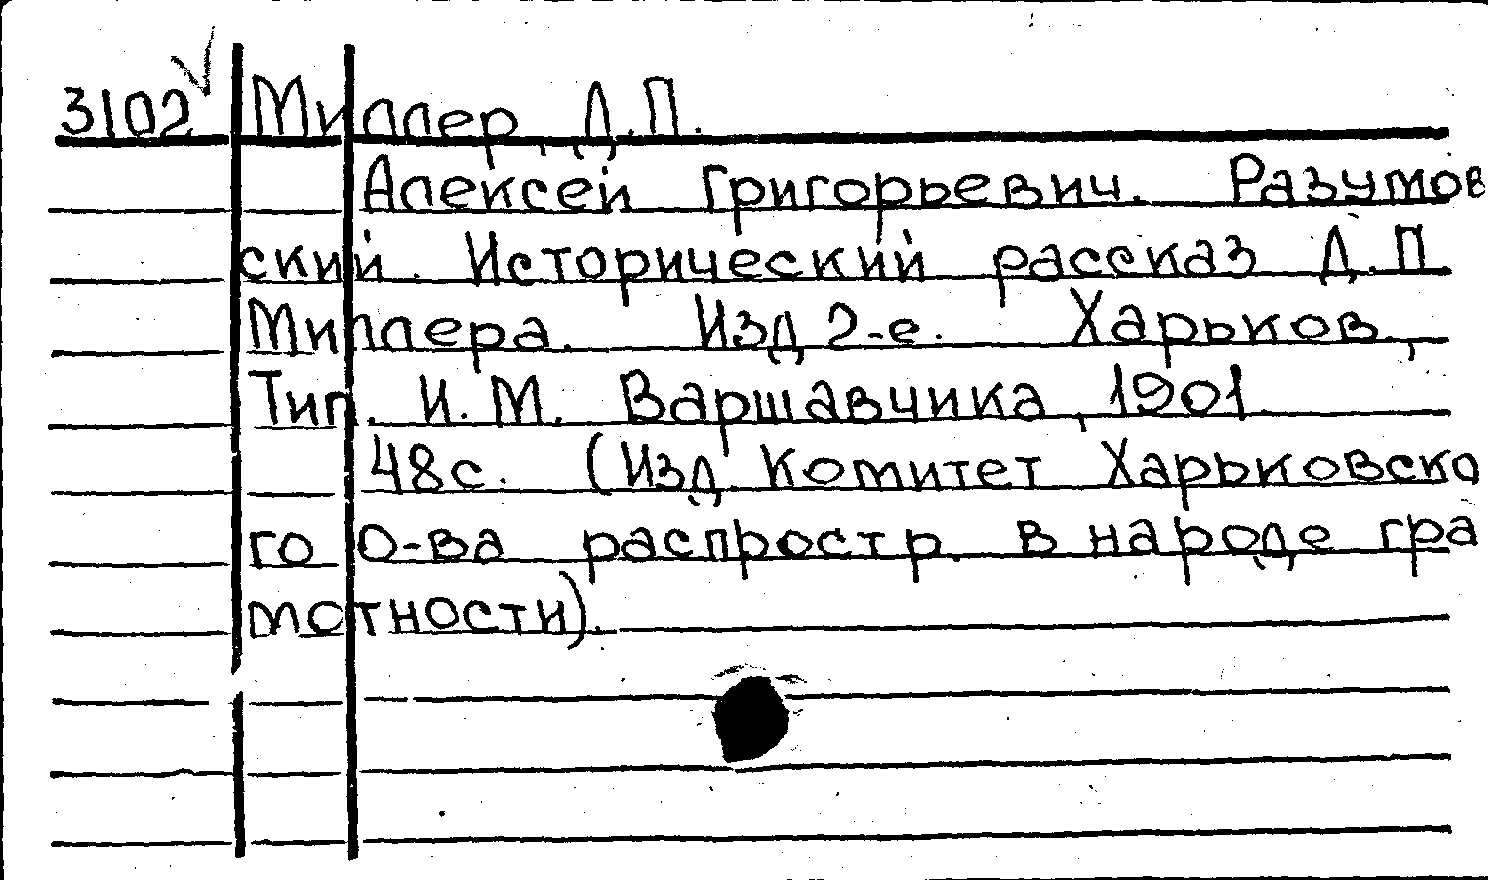 3102 Миллер, Д.П.
Алексей Григорьевич. Разумов
ский. Исторический рассказ Д.П.
Миллера. Изд 2-е. Харьков,
Тип. И.М. Варшавчика, 1901.
48с. (Изд. Комитет Харьковско
го о-ва распростр. в народе гра
мотности).